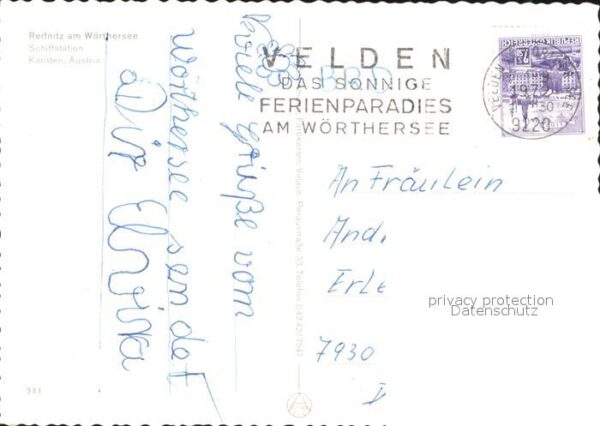 Reifnitz am Wörthersee
Schiffstation
Kärnten, Austria
VELDEN
DAS SONNIGE
FERIENPARADIES
AM WÖRTHERSEE
REPUBLIK ÖSTERREICH
VELDEN
9220
Viele Grüße vom
Wörthersee sendet
Dir
An Fräulein
And.
Erle
7930
privacy protection
Datenschutz
341